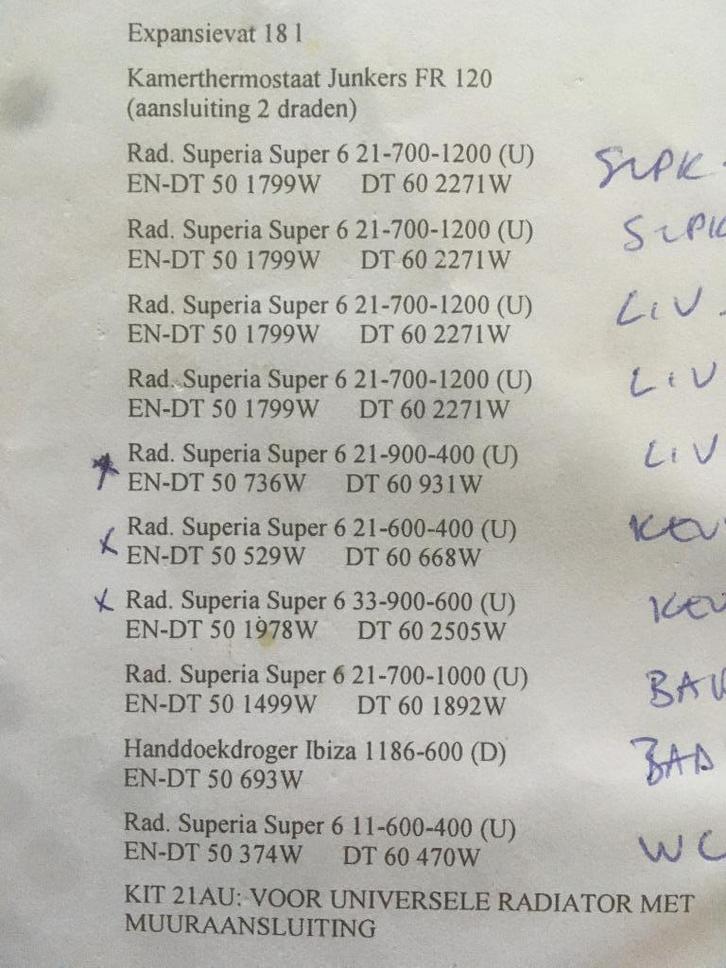 Expansievat 18 l
Kamerthermostaat Junkers FR 120
(aansluiting 2 draden)
Rad. Superia Super 6 21-700-1200 (U) SLPK
EN-DT 50 1799W DT 60 2271W
Rad. Superia Super 6 21-700-1200 (U) SLPK
EN-DT 50 1799W DT 60 2271W
Rad. Superia Super 6 21-700-1200 (U) LIV
EN-DT 50 1799W DT 60 2271W
Rad. Superia Super 6 21-700-1200 (U) LIV
EN-DT 50 1799W DT 60 2271W
Rad. Superia Super 6 21-900-400 (U) LIV
EN-DT 50 736W DT 60 931W
Rad. Superia Super 6 21-600-400 (U) KEU
x EN-DT 50 529W DT 60 668W
x Rad. Superia Super 6 33-900-600 (U) KEU
EN-DT 50 1978W DT 60 2505W
Rad. Superia Super 6 21-700-1000 (U)
EN-DT 50 1499W DT 60 1892W
Handdoekdroger Ibiza 1186-600 (D) BAD
EN-DT 50 693W
Rad. Superia Super 6 11-600-400 (U) WC
EN-DT 50 374W DT 60 470W
KIT 21AU: VOOR UNIVERSELE RADIATOR MET
MUURAANSLUITING